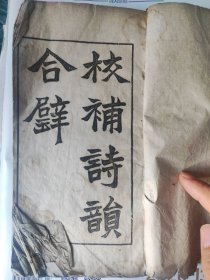 校補詩韻
合璧